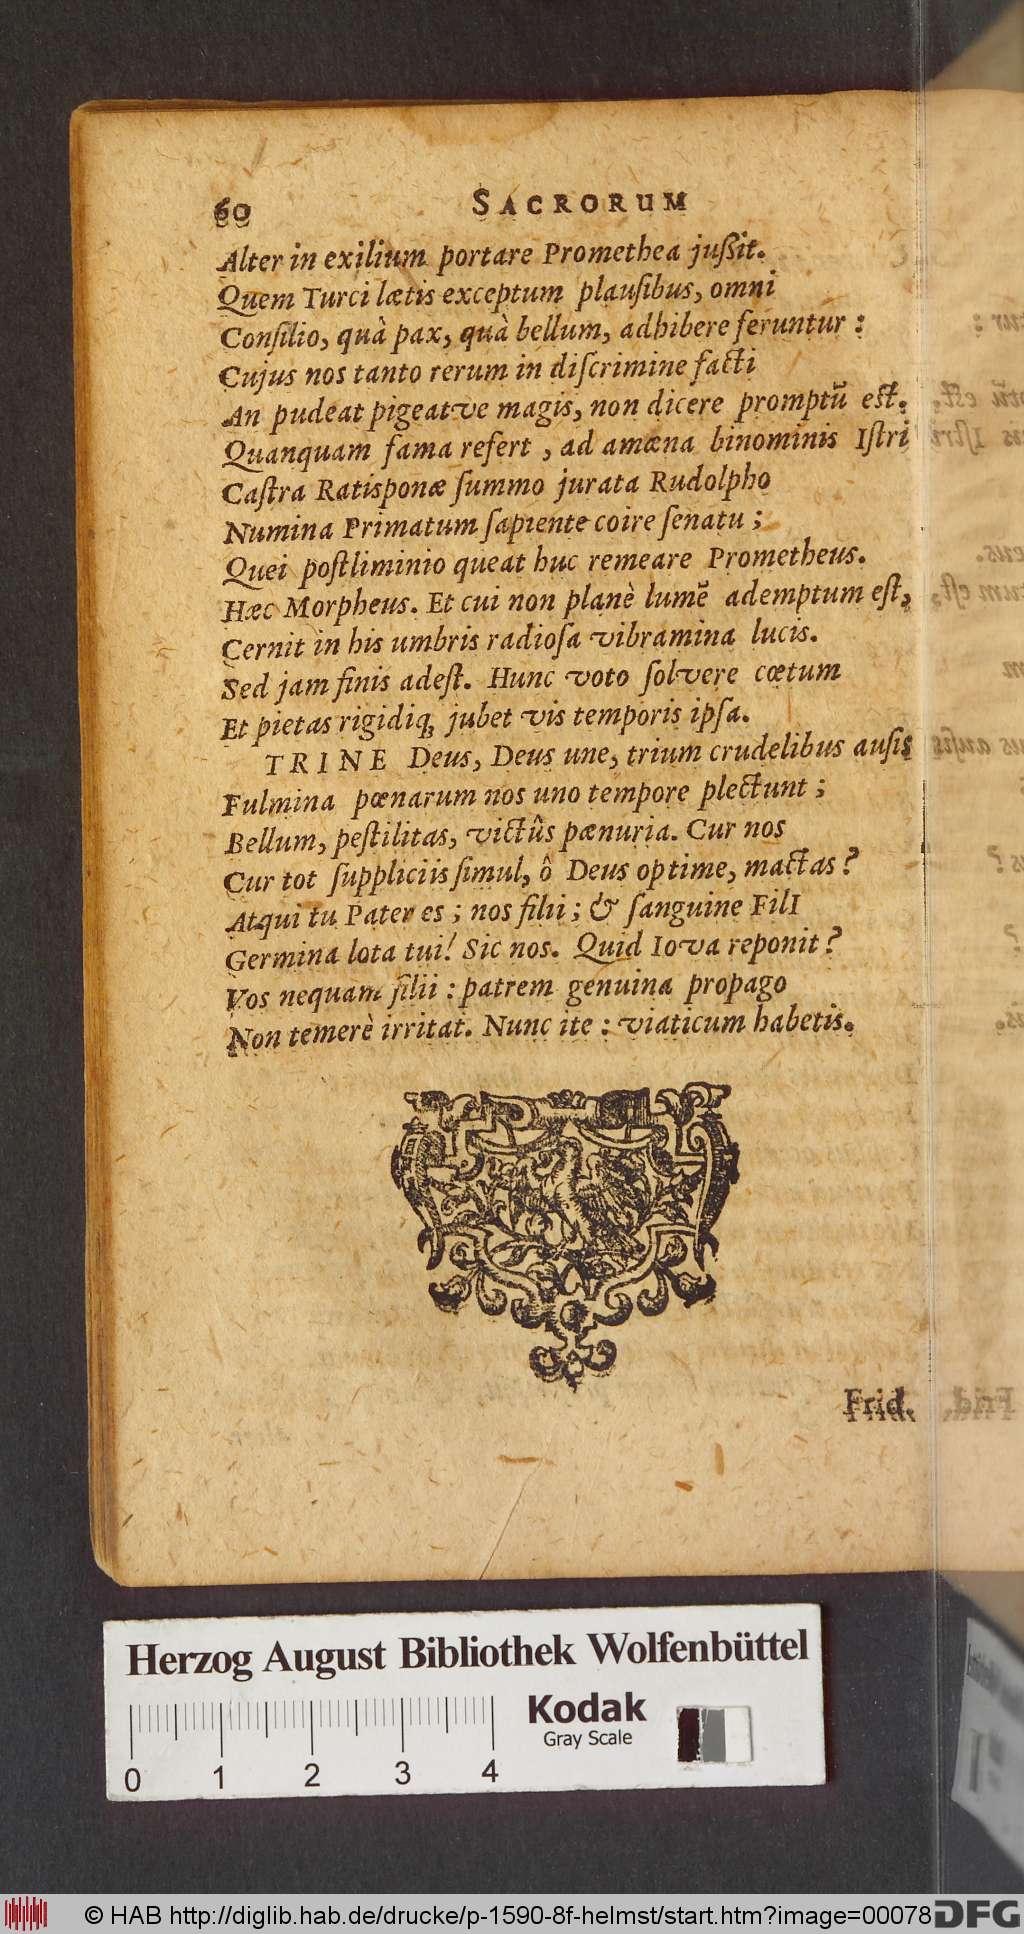 60 SACRORUM
Alter in exilium portare Promethea juſſit.
Quem Turci lætis exceptum plauſibus, omni
Conſilio, quà pax, quà bellum, adhibere feruntur :
Cujus nos tanto rerum in diſcrimine facti
An pudeat pigeatve magis, non dicere promptũ eſt.
Quanquam fama refert , ad amœna binominis Iſtri
Caſtra Ratisponæ ſummo jurata Rudolpho
Numina Primatum ſapiente coire ſenatu ;
Quei poſtliminio queat huc remeare Prometheus.
Hæc Morpheus. Et cui non planè lumẽ ademptum eſt,
Cernit in his umbris radioſa vibramina lucis.
Sed jam finis adeſt. Hunc voto ſolvere cœtum
Et pietas rigidiq; jubet vis temporis ipſa.
TRINE Deus, Deus une, trium crudelibus auſis
Fulmina pœnarum nos uno tempore plectunt ;
Bellum, peſtilitas, victûs pænuria. Cur nos
Cur tot ſuppliciis ſimul, ô Deus optime, mactas ?
Atqui tu Pater es ; nos filii ; & ſanguine FilI
Germina lota tui! Sic nos. Quid Iova reponit ?
Vos nequam filii : patrem genuina propago
Non temerè irritat. Nunc ite : viaticum habetis.
Frid.
Herzog August Bibliothek Wolfenbüttel
Kodak
Gray Scale
0 1 2 3 4
© HAB http://diglib.hab.de/drucke/p-1590-8f-helmst/start.htm?image=00078
DFG